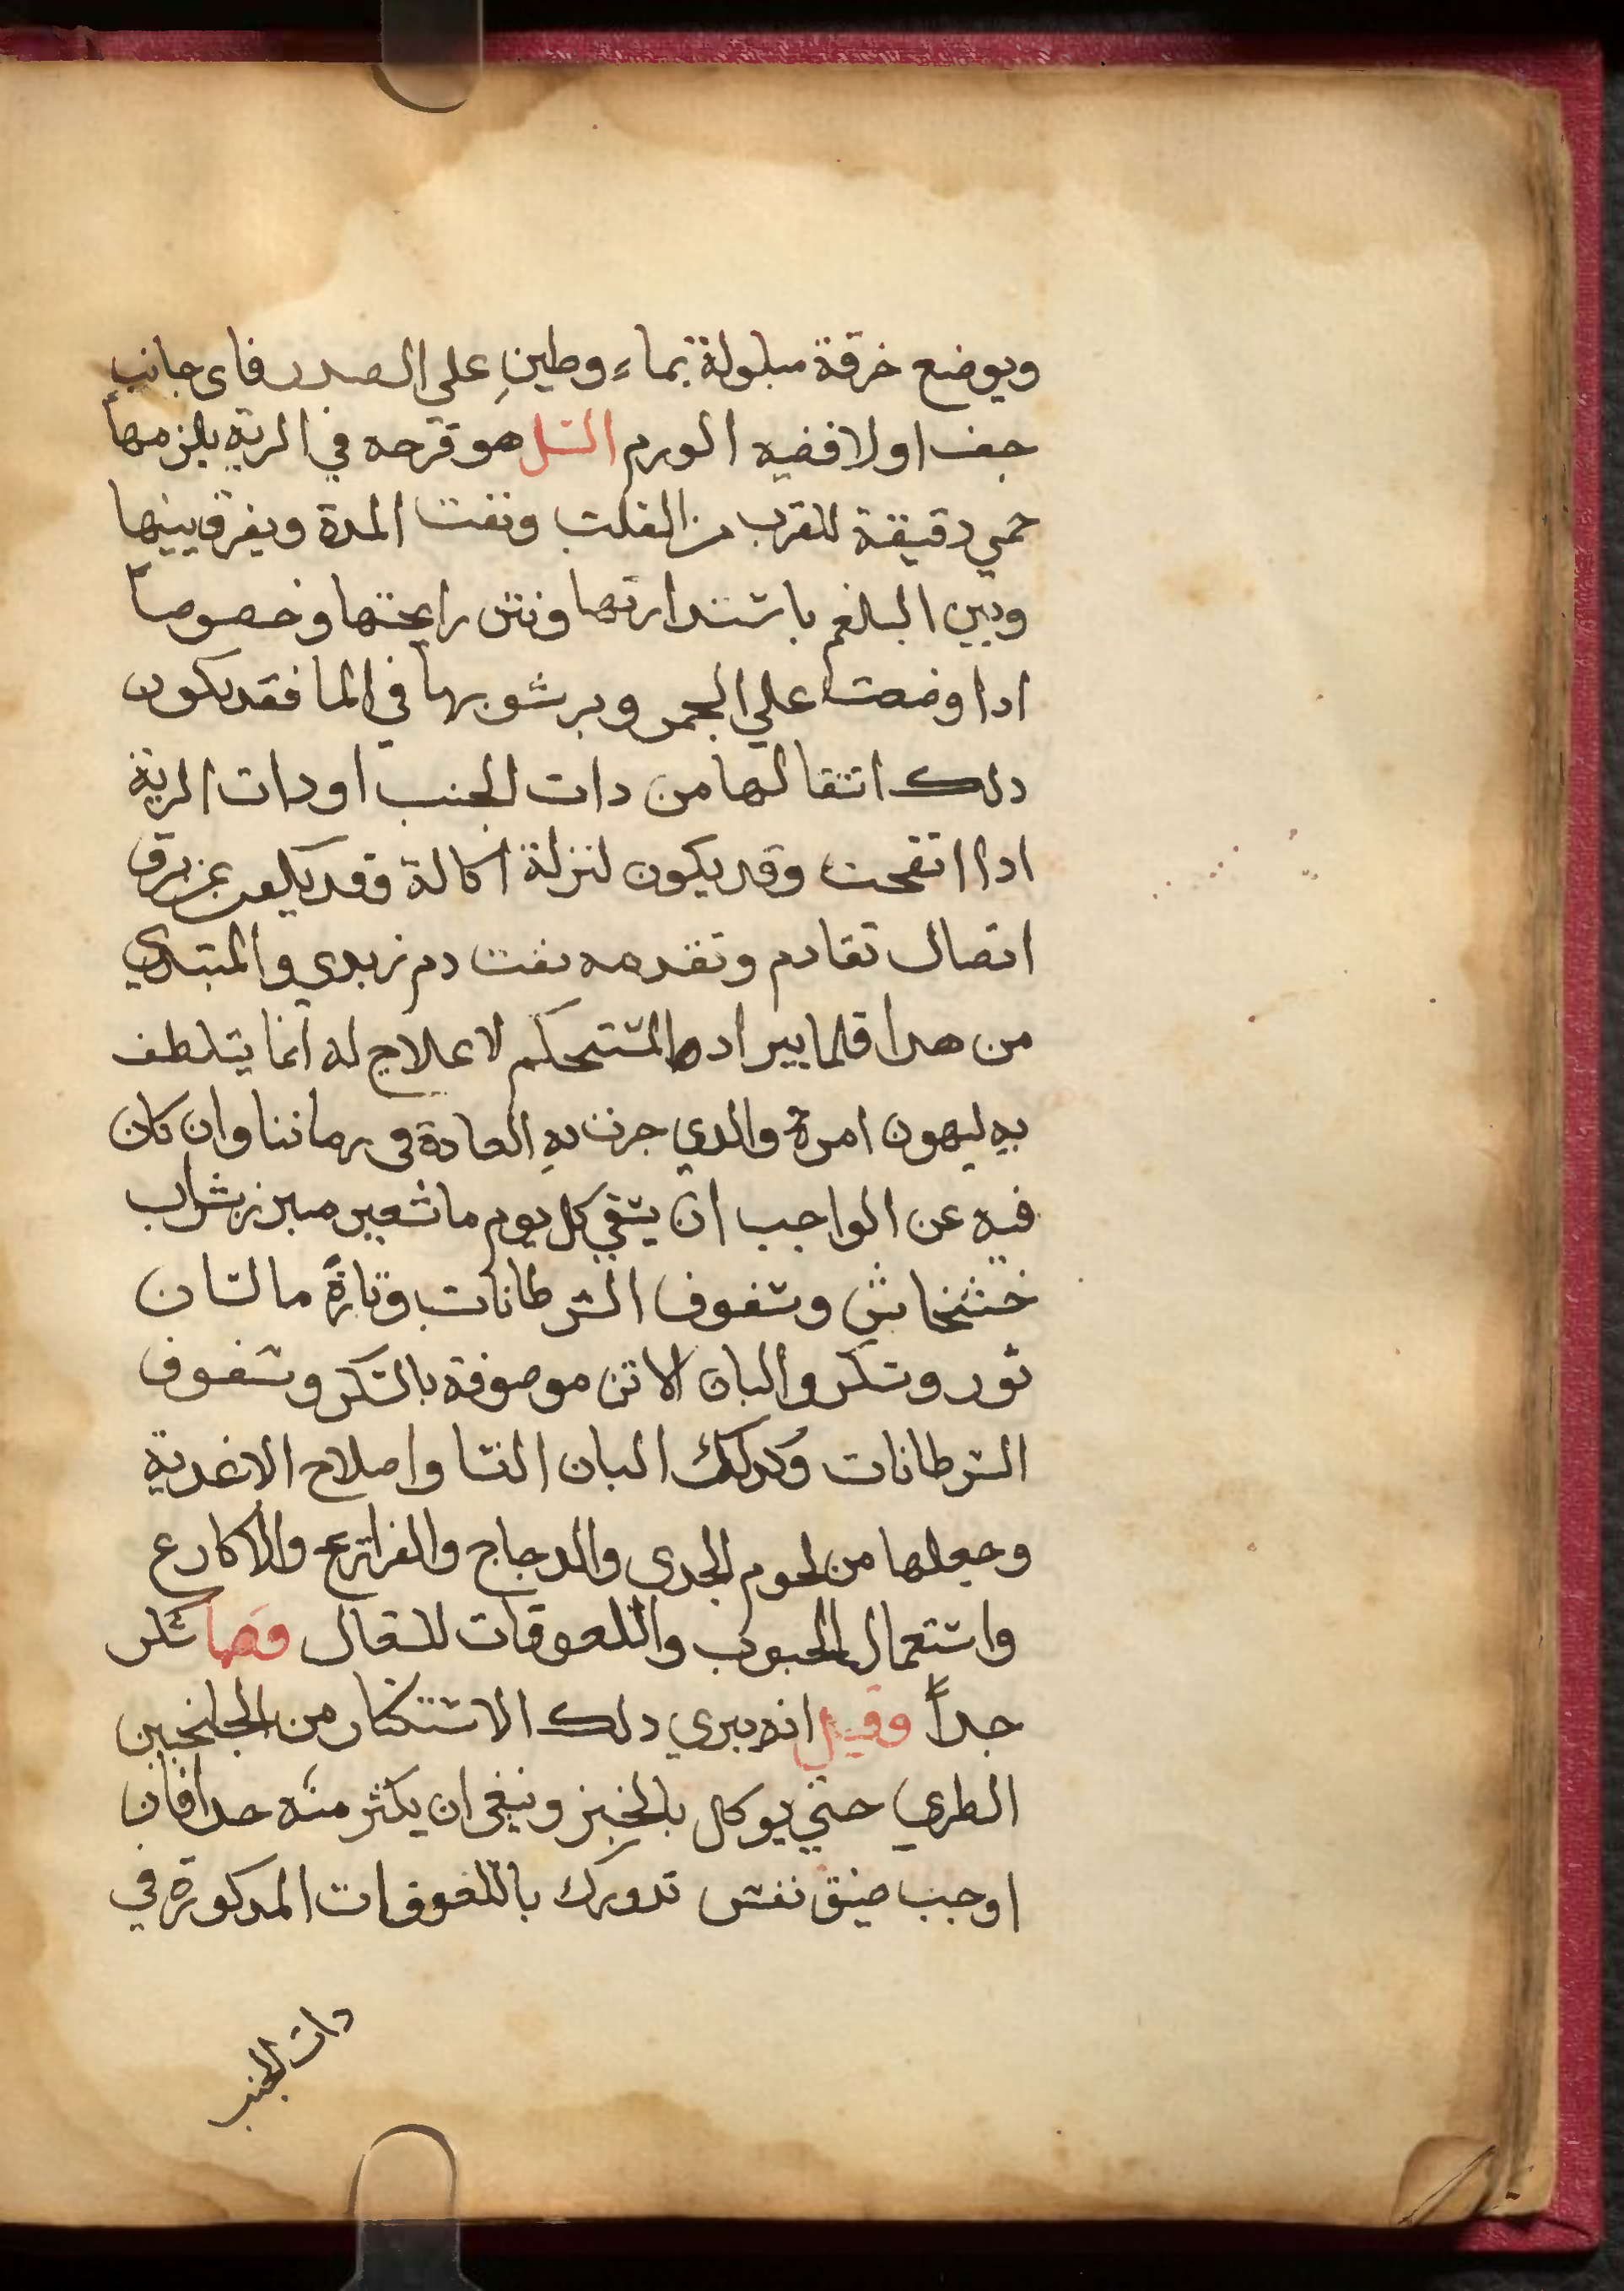 ويوضع خرقة مبلولة بماء وطينٍ علي الصدر فاى جانب
جف اولا ففيه الورم السل هو قرحه في الرية يلزمها
حمي دقيقة للقرب من القلب ونفث المدة ويفرق بينها
وبين البلغم باستدارتها ونتن رايحتها وخصوصاً
ادا وضعت علي الجمر وبرسوبها في الما فقد يكون
دلك انتقالها من دات الجنب او دات الرية
ادا انفجت وقد يكون لنزلة اكالة وقد يكون عن تفرق
اتصال تقادم وتقدمه نفث دم زبدي والمبتدي
من هدا قلما يبرا والمستحكم لا علاج له انما يتلطف
به ليهون امرة والدي جرت بهِ العادة فى زماننا وان كان
فيه عن الواجب ان يسقي كل يوم ما شعير مبزر بشراب
خشخاش وسفوف السرطانات وتارةً ما لسان
ثور وسكر والبان الاتن موصوفة بالسكر وسفوف
السرطانات وكدلك البان النسا واصلاح الاغدية
وجعلها من لحوم الجدى والدجاج والفراريج والاكارع
واستعمال الحبوب واللعوقات للسعال سكر
جداً وقيل انه يبري دلك الاستكثار من الجلنجبين
الطري حتي يوكل بالخبز وينبغى ان يكثر منه جدا فان
اوجب ضيق نفس تدورك باللعوقات المدكورة في
دات الجنب